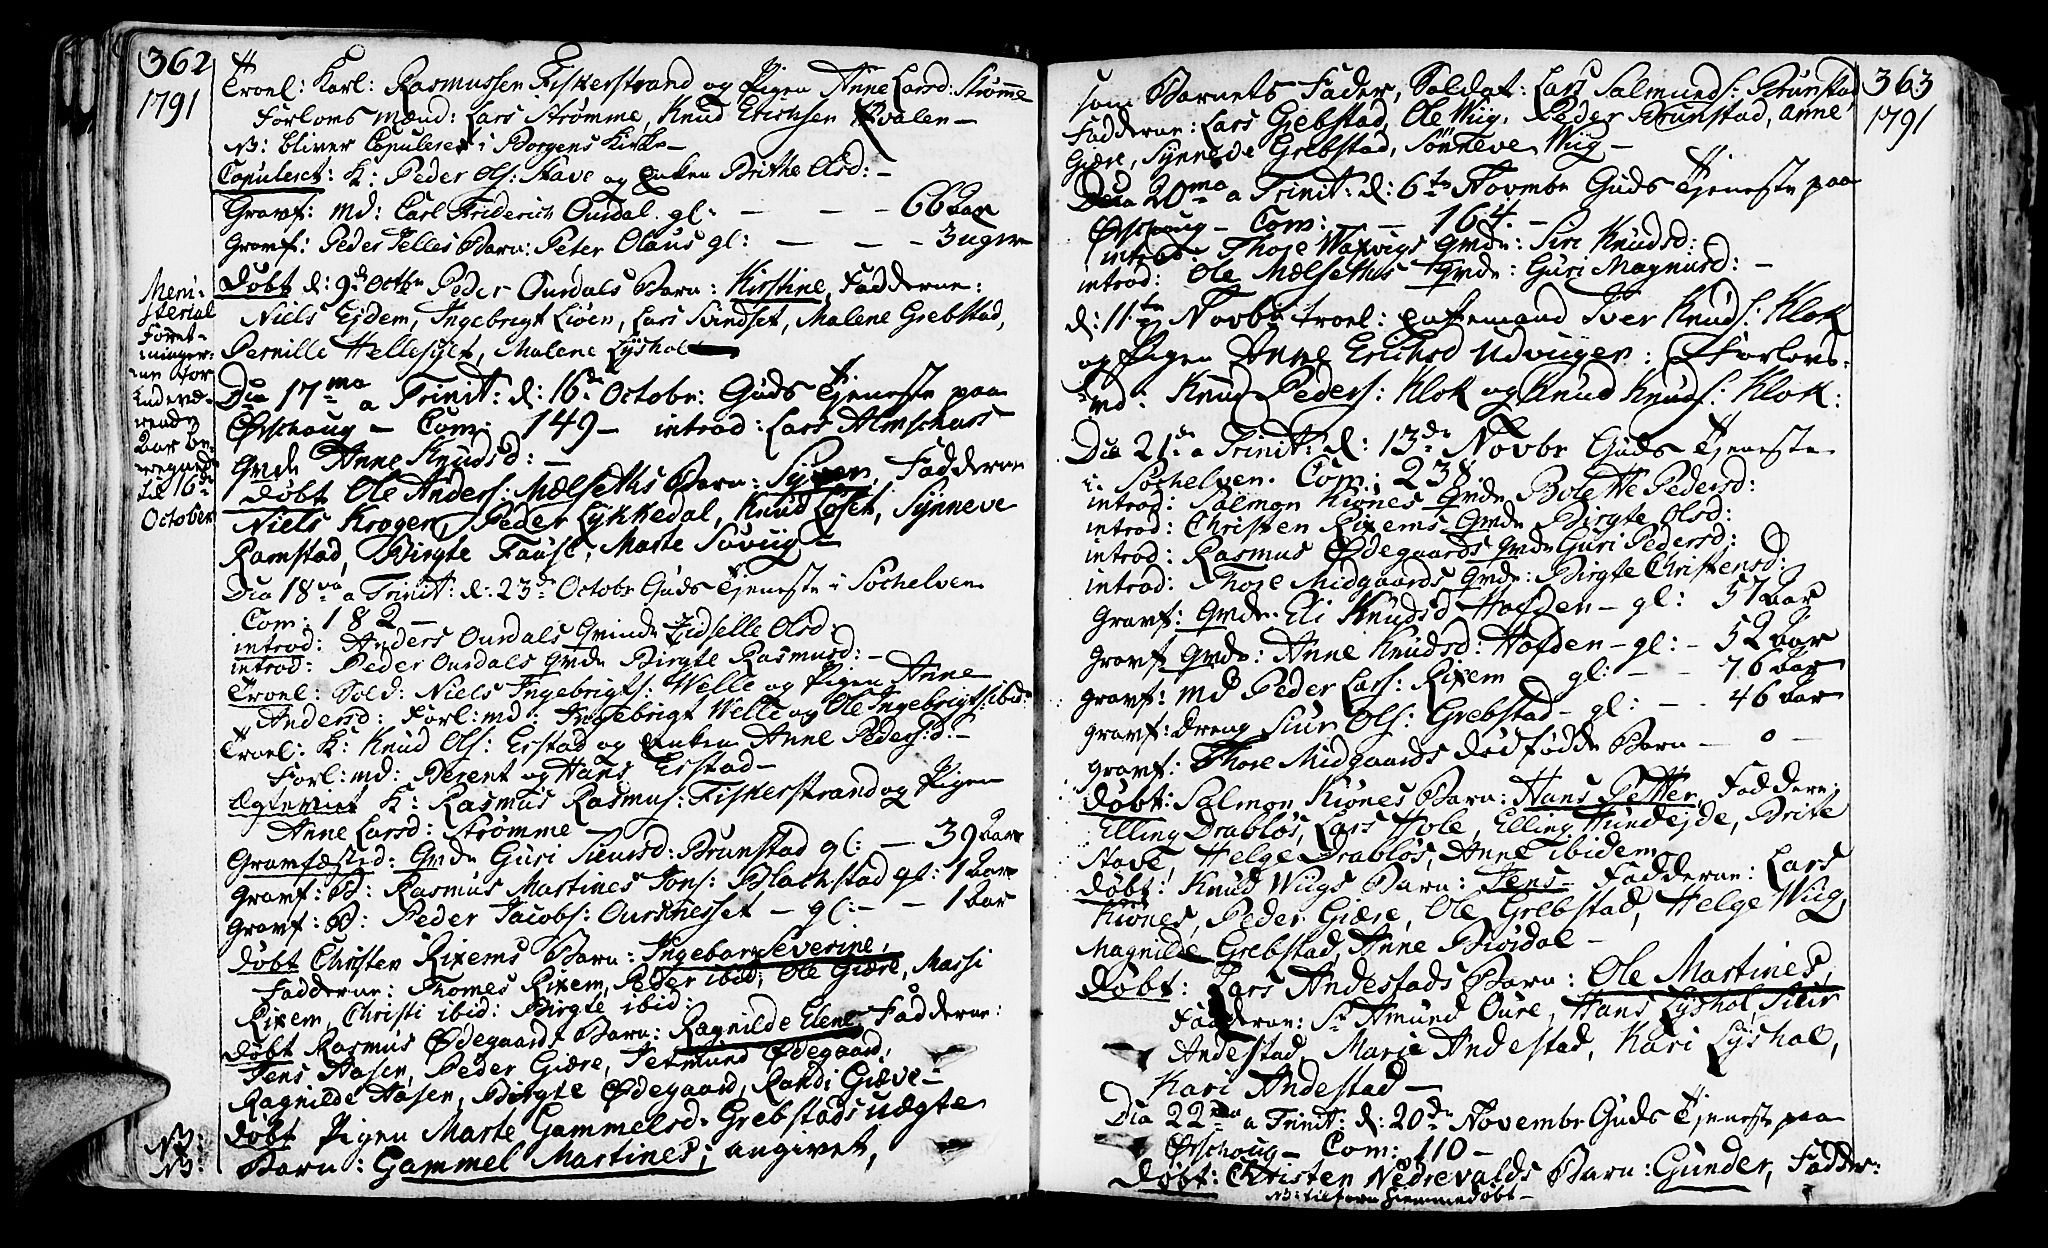 362
1791
Troel: Karl: Rasmussen Fiskerstrand og Pigen Anne Larsd: Strømme
Forlovs mænd: Lars Strømme, Knud Erichsen Hvalen –
NB: bliver Copuleret i Borgens Kirke –
Copuleret: K: Peder Ols: Stave og Enken Brithe Olsd: –
Gravf: md: Carl Friderich Ourdal. gl: – – – 66 Aar
Gravf: Peder Telles Barn: Peter Olaus gl: – – – 3 uger –
Døbt d: 9de Octbr Peder Ourdals Barn: Kirstine, Fadderne:
Niels Ejdem, Ingebrigt Liøen, Lars Svindset, Malene Grebstad,
Pernille Hellesylt, Malene Lyshol
Meni-
sterial
Forret-
ninger:
ne for
Indevæ-
rende
Aar be-
regnede
til 16de
October
Dca 17ma a Trinit: d: 16de Octobr: Guds Tjeneste paa
Ørschoug – Com: 149 – introd: Lars Almschaars
Qvde Anne Knudsd: –
døbt Ole Anders: Mælseths Barn: Syver, Fadderne
Niels Krogen, Peder Lykkedal, Knud Løset, Synneve
Ramstad, Birgte Fause, Marte Søviig –
Dca 18va a Trinit: d: 23de Octobr Guds Tjeneste i Søchelven
Com: 182 –
introd: Anders Ourdals Qvinde Zidselle Olsd:
introd: Peder Ourdals Qvde Birgte Rasmusd: –
Troel: Sold: Niels Ingebrigts: Welle og Pigen Anne
Andersd: Forl: md: Ingebrigt Welle og Ole Ingebrigts: ibid:
Troel: K: Knud Ols: Erstad og Enken Anne Pedersd: –
Forl: md: Berent og Hans Erstad –
Ægteviet K: Rasmus Rasmus: Fiskerstrand og Pigen
Anne Larsd: Strømme
Gravfæsted: Qvde Guri Siursd: Brunstad gl: – 39 Aar
Gravf: B: Rasmus Martines Jons: Blachstad gl: 1 Aar
Gravf: B: Peder Jacobs: Ourschesset – gl: – – 1 Aar
døbt Christen Rixems Barn: Ingebor Severine,
Fadderne: Thomes Rixem, Peder ibid; Ole Giære, Massi
Rixem, Christi ibid: Birgte ibid:
døbt Rasmus Ødegaards Barn: Ragnilde Elene Fadderne:
Jens Aasen, Peder Giære, Jetmund Ødegaard,
Ragnilde Aasen, Birgte Ødegaard, Randi Giæve –
NB: døbt Pigen Marte Gammelsd: Grebstads uægte
NB: Barn: Gammel Martines; angivet,
363
1791
som Barnets Fader, Soldat: Lars Salmunds: Brunstad
Fadderne: Lars Grebstad, Ole Wiig, Peder Brunstad, Anne
Giære, Synneve Grebstad, Sønneve Wiig –
Dca 20ma a Trinit: d: 6te Novembr Guds Tjeneste paa
Ørschoug – Com: – – 164. –
introd: Thore Waxvigs Qvde: Siri Knudsd:
introd: Ole Mælseths Qvde: Guri Magnusd: –
d: 11te Novbr troel: Enkemand Iver Knuds: Klok
og Pigen Anne Erichsd Udvugen: Forlovs-
md: Knud Peders: Klok og Knud Knuds: Klok:
Dca 21de a Trinit: d: 13de Novbr Guds Tjeneste
i Søchelven. Com: 238
introd: Salmon Kiønes Qvde Bolette Pedersd:
introd: Christen Rixems Qvde Birgte Olsd:
introd: Rasmus Ødegaards Qvde Guri Pedersd:
introd: Thore Midgaards Qvde: Birgte Christensd:
Gravf: Qvde: Eli Knudsd Hofden – gl: 57 Aar
Gravf: Qvde: Anne Knudsd: Hofden – gl: – 52 Aar
Gravf: Md Peder Lars: Rixem gl: – – 76 Aar
Gravf: Dreng Siur Ols: Grebstad – gl: – – 46 Aar
Gravf: Thore Midgaards dødfødde Barn – – 0 –
døbt: Salmon Kiønes Barn: Hans Petter, Faddere:
Elling Drabløs, Lars Hole, Elling Hundejde, Brite
Stave, Helge Drabløs, Anne ibidem
døbt: Knud Wiigs Barn: Jens Fadderne: Lars
Kiønes, Peder Giære, Ole Grebstad, Helge Wiig,
Magnilde Grebstad, Anne Biødal –
døbt: Lars Andestads Barn: Ole Martines,
Fadderne: Sr Amund Oure, Hans Lyshol, Siur
Andestad, Marie Andestad, Kari Lyshol,
Kari Andestad –
Dca 22da a Trinit: d: 20de Novembr Guds Tjeneste paa
Ørschoug – Com: 110 –
døbt: Christen Nedrevalds Barn: Gunder, Fadder:
NB: tilforn hiemmedøbt –